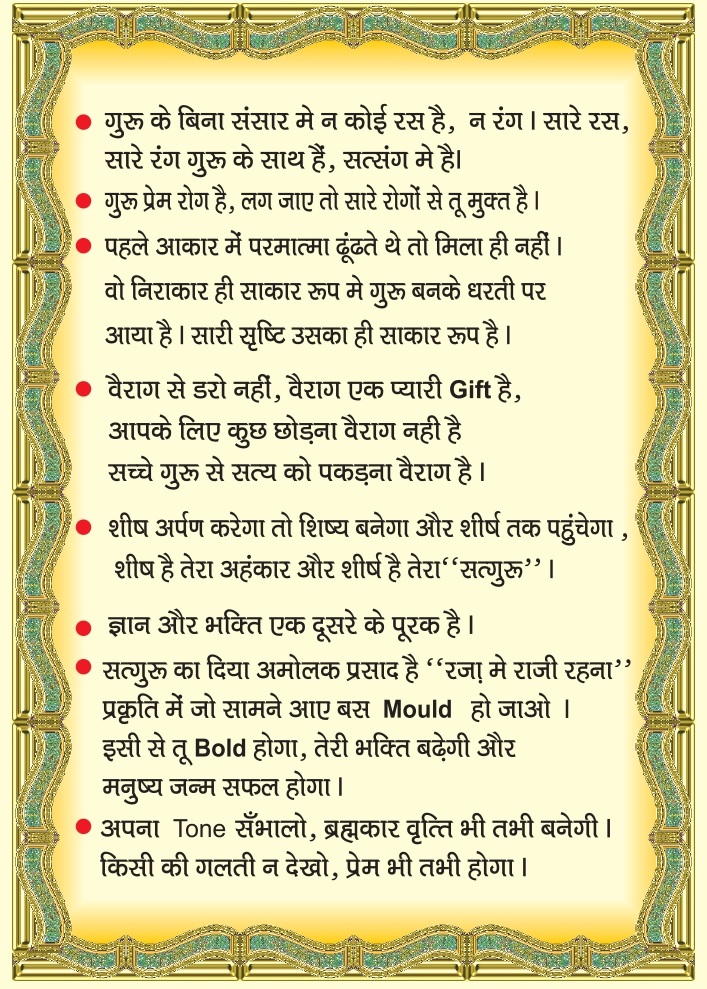 • गुरू के बिना संसार मे न कोई रस है, न रंग । सारे रस,
सारे रंग गुरू के साथ हैं, सत्संग मे है।
• गुरू प्रेम रोग है, लग जाए तो सारे रोगों से तू मुक्त है ।
• पहले आकार में परमात्मा ढूंढते थे तो मिला ही नहीं ।
वो निराकार ही साकार रूप मे गुरू बनके धरती पर
आया है । सारी सृष्टि उसका ही साकार रूप है ।
• वैराग से डरो नहीं, वैराग एक प्यारी Gift है,
आपके लिए कुछ छोड़ना वैराग नही है
सच्चे गुरू से सत्य को पकड़ना वैराग है ।
• शीष अर्पण करेगा तो शिष्य बनेगा और शीर्ष तक पहुंचेगा ,
शीष है तेरा अहंकार और शीर्ष है तेरा ‘‘सत्गुरू’’ ।
• ज्ञान और भक्ति एक दूसरे के पूरक है ।
• सत्गुरू का दिया अमोलक प्रसाद है ‘‘रजा़ मे राजी रहना’’
प्रकृति में जो सामने आए बस Mould हो जाओ ।
इसी से तू Bold होगा, तेरी भक्ति बढ़ेगी और
मनुष्य जन्म सफल होगा ।
• अपना Tone सँभालो, ब्रह्मकार वृत्ति भी तभी बनेगी ।
किसी की गलती न देखो, प्रेम भी तभी होगा ।